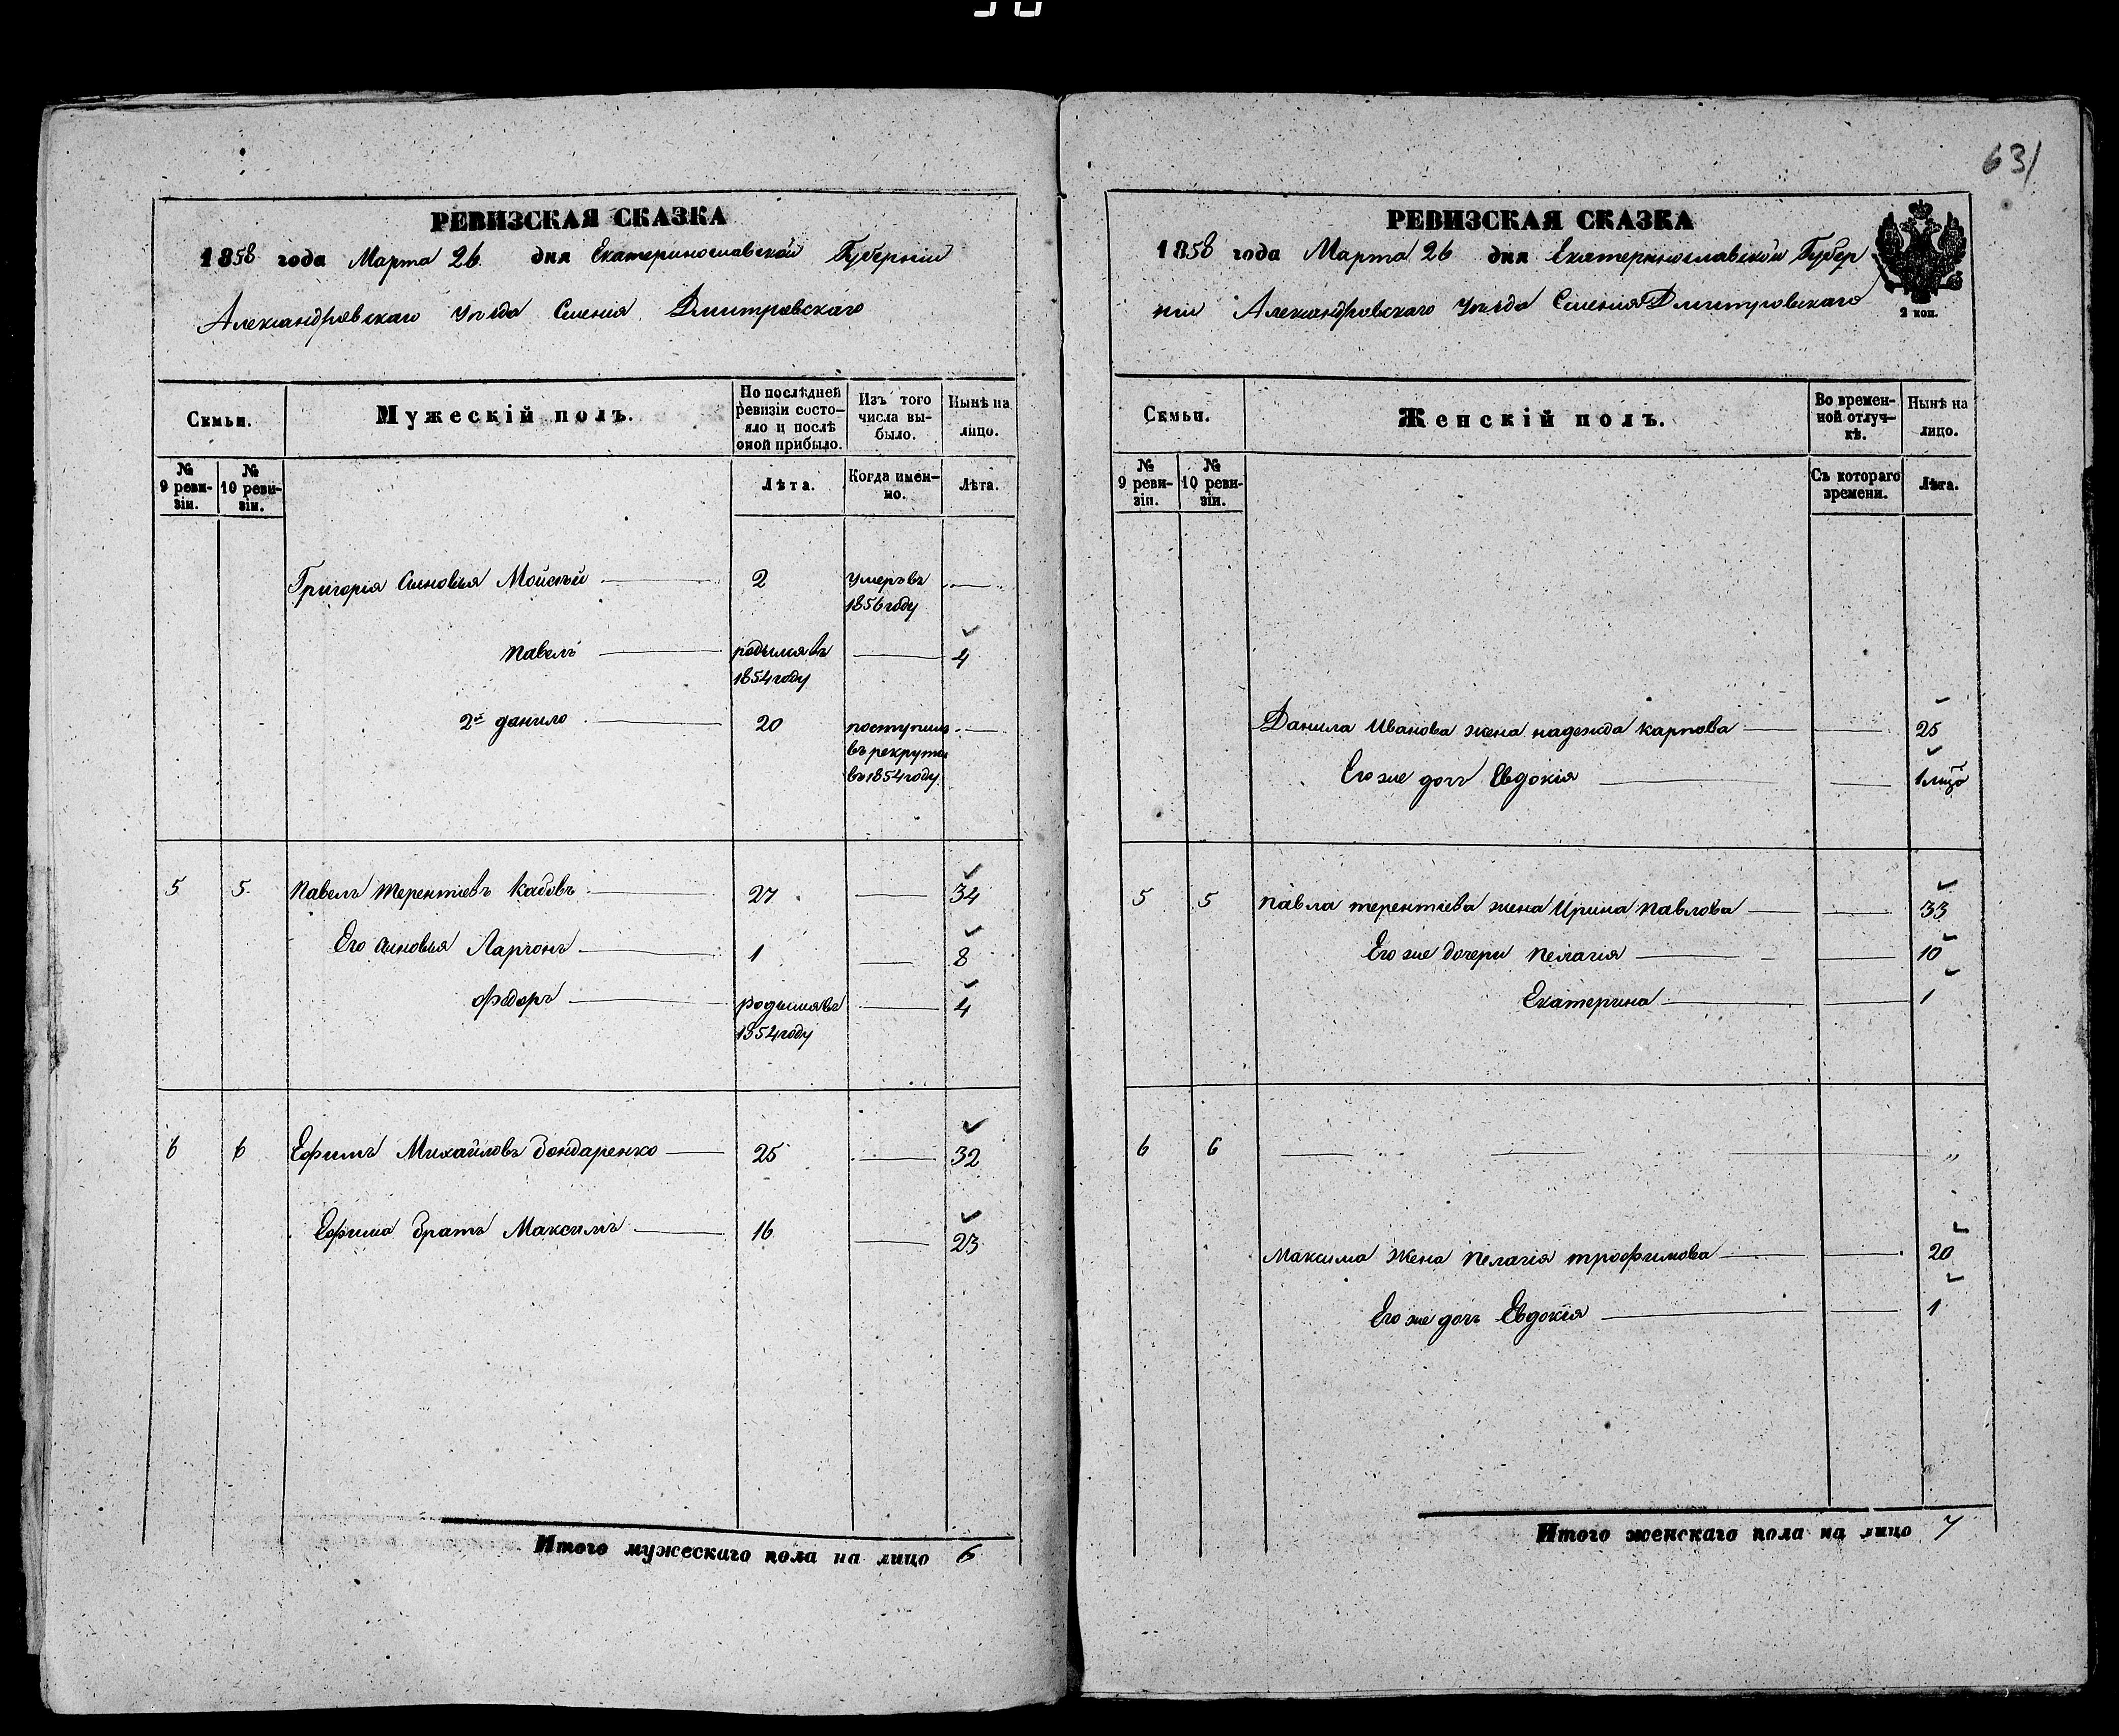 631
РЕВИЗСКАЯ СКАЗКА
1858 года Марта 26 дня Екатеринославской Губерніи
Александровскаго уѣзда Селенія Дмитровскаго
Семьи.
Мужескій полъ.
По послѣдней ревизіи состояло и послѣ оной прибыло.
Изъ того числа выбыло.
Нынѣ на лицо.
№ 9 ревизіи.
№ 10 ревизіи.
Лѣта.
Когда именно.
Лѣта.
Григорія сыновья Мойсѣй 2 умеръ въ 1856 году
Павелъ родился въ 1854 году 4
2й данило 20 поступилъ в рекруты въ 1854 году
5 5 Павелъ Терентіевъ 27 34
Его сыновья Ларіонъ 1 8
Федоръ родился въ 1854 году 4
6 6 Ефимъ Михайловъ Бондаренко 25 32
Ефима братъ Максимъ 16 23
Итого мужескаго пола на лицо 6
РЕВИЗСКАЯ СКАЗКА
1858 года Марта 26 дня Екатеринославской Губер
ніи Александровскаго уѣзда Селенія Дмитровскаго
2 коп.
Семьи.
Женскій полъ.
Во временной отлучкѣ.
Нынѣ на лицо.
№ 9 ревизіи.
№ 10 ревизіи.
Съ котораго времени.
Лѣта.
Данила Иванова жена надежда карпова 25
Его же дочь Евдокія
5 5 Павла терентіева жена Ирина Павлова 33
Его же дочери Пелагія 10
Екатерина 1
6 6 „
Максима жена Пелагія трофимова 20
Его же дочь Евдокія 1
Итого женскаго пола на лицо 7